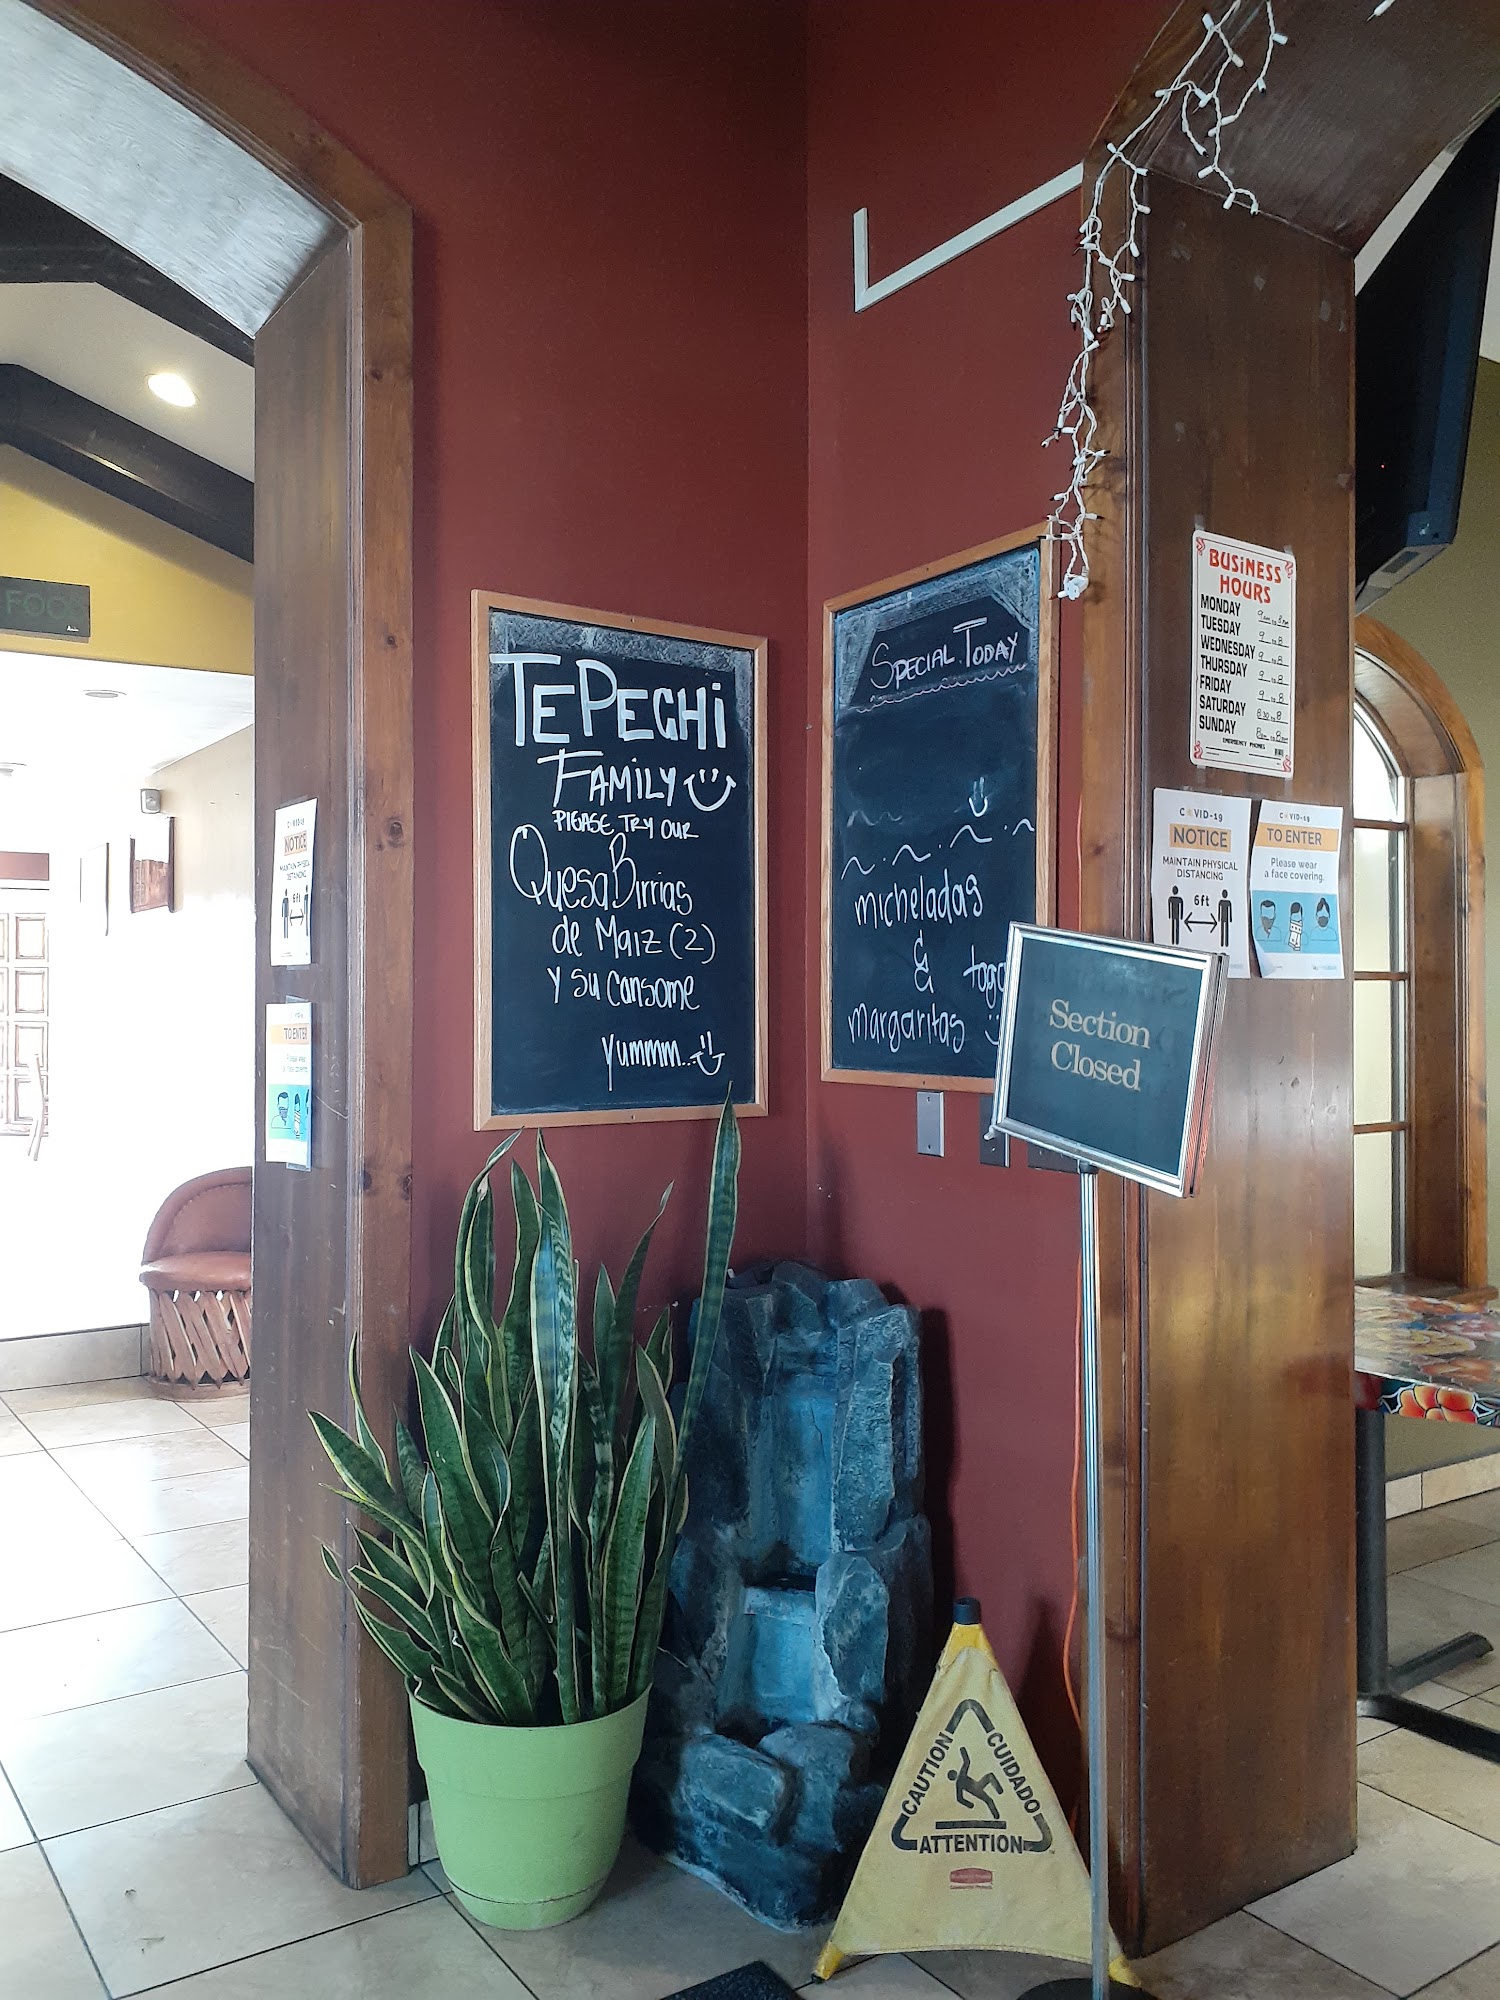 FOOD
TEPECHI
FAMILY
PLEASE TRY OUR
QuesaBirrias
de Maiz (2)
y su Consome
yummm...
SPECIAL TODAY
micheladas
&
togo
margaritas
Section
Closed
BUSINESS
HOURS
MONDAY 9am to 8pm
TUESDAY 9 to 8
WEDNESDAY 9 to 8
THURSDAY 9 to 8
FRIDAY 9 to 8
SATURDAY 8:30 to 8
SUNDAY 8am to 8pm
EMERGENCY PHONES
COVID-19
NOTICE
MAINTAIN PHYSICAL
DISTANCING
6ft
COVID-19
TO ENTER
Please wear
a face covering.
COVID-19
NOTICE
MAINTAIN PHYSICAL
DISTANCING
6ft
COVID-19
TO ENTER
Please wear
a face covering
CAUTION
CUIDADO
ATTENTION